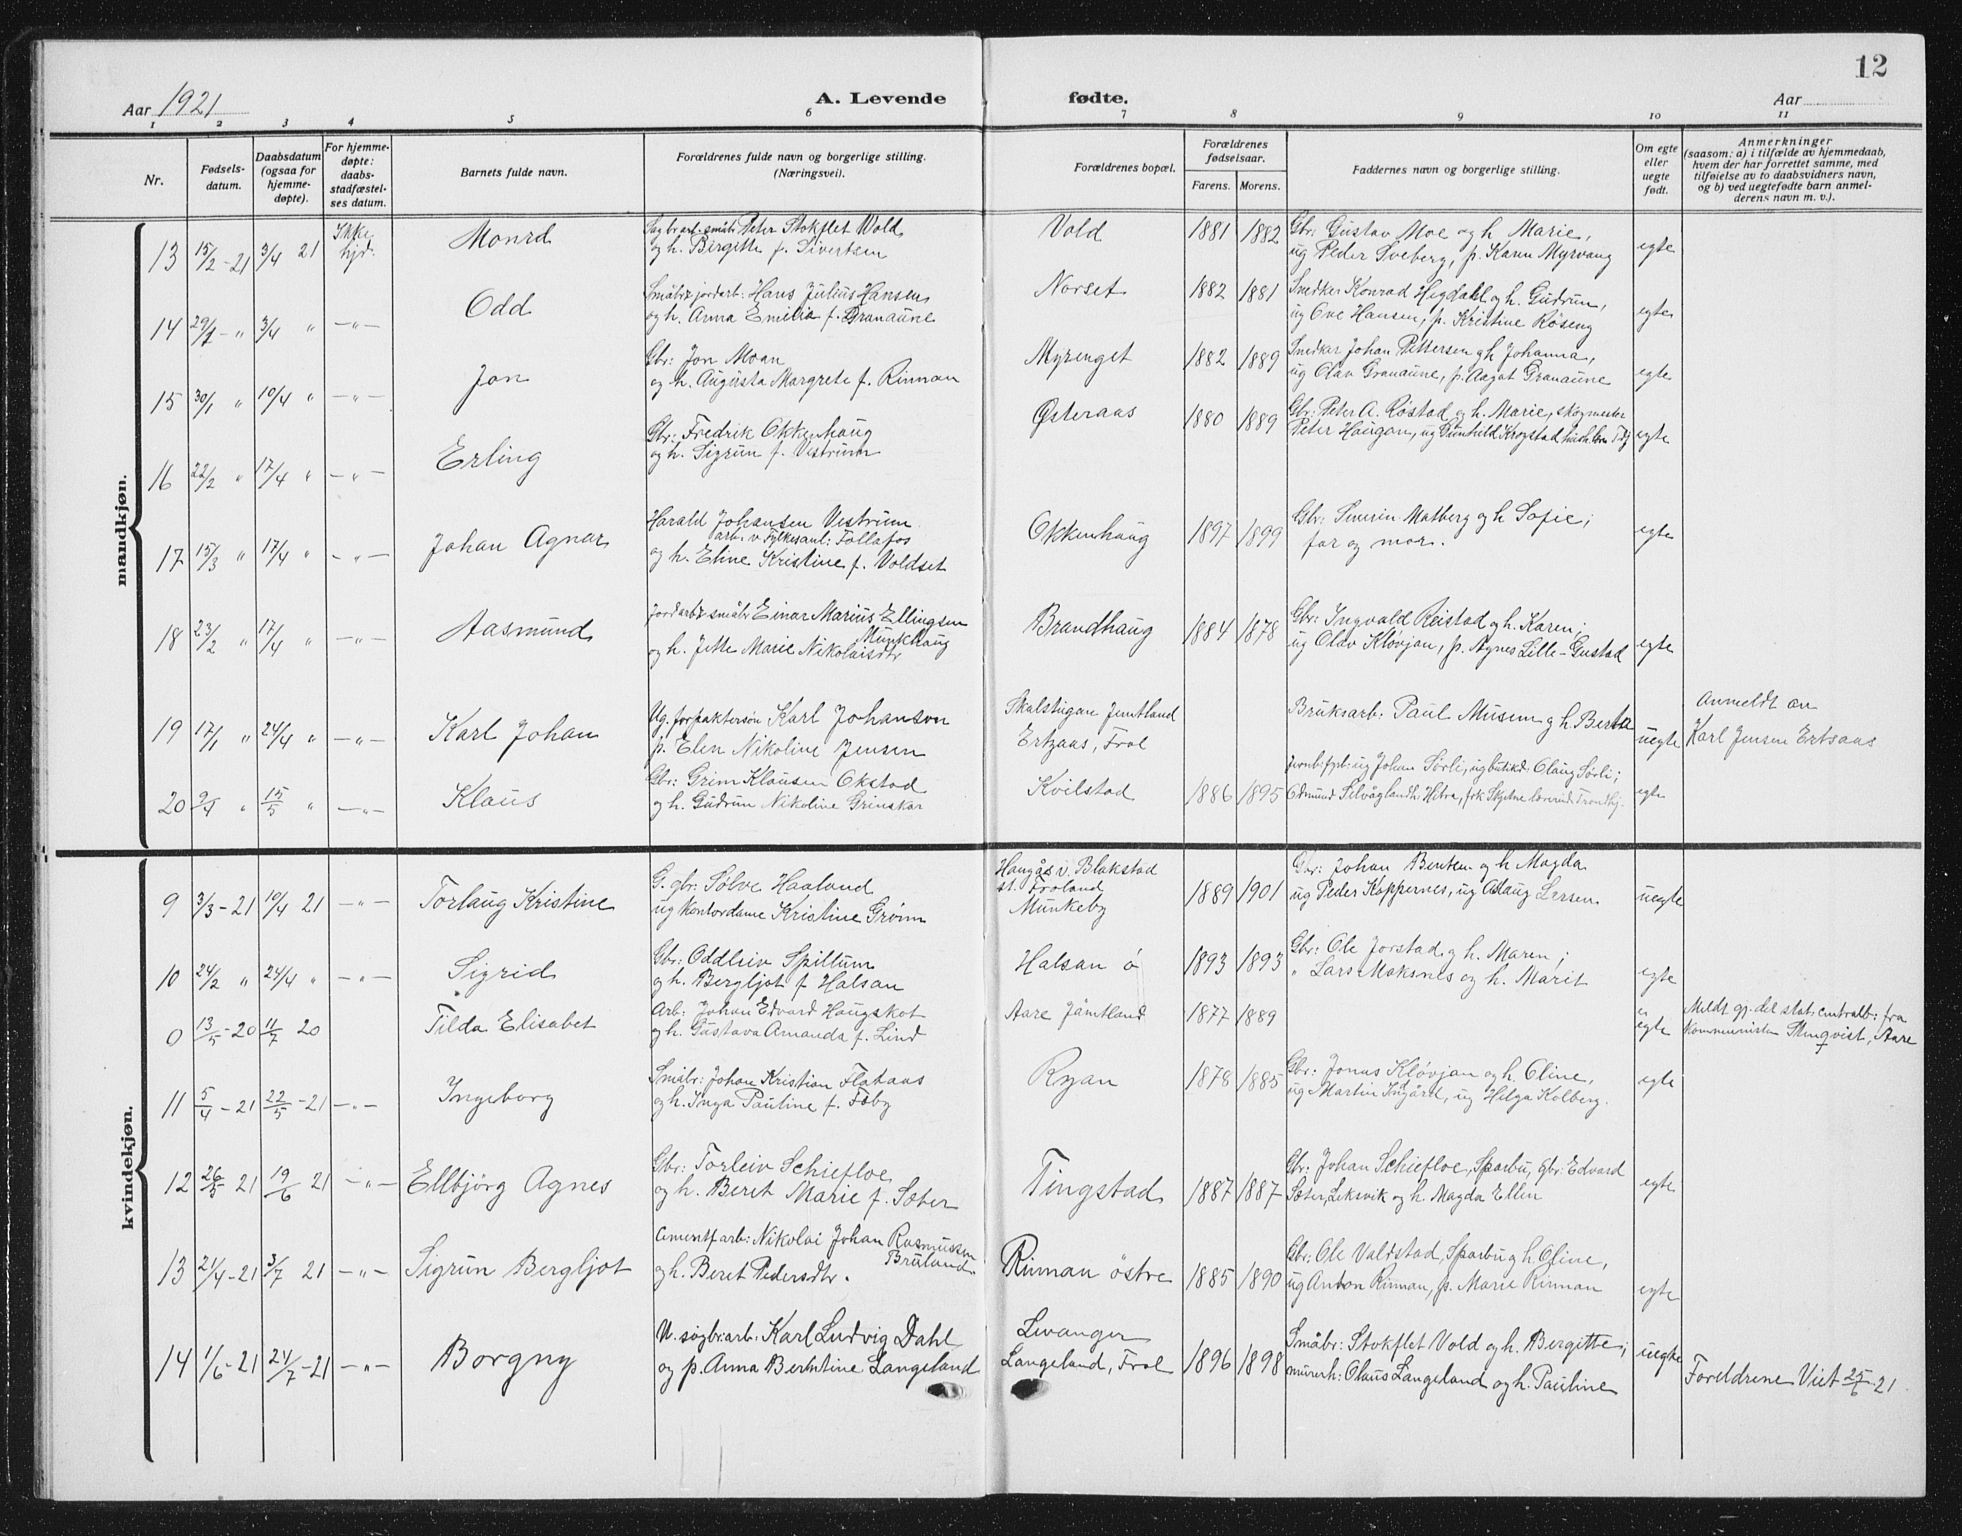 12
Aar 1921
A. Levende fødte.
Aar
1 2 3 4 5 6 7 8 9 10 11
Nr.
Fødsels-
datum.
Daabsdatum
(ogsaa for
hjemme-
døpte).
For hjemme-
døpte:
daabs-
stadfæstel-
ses datum.
Barnets fulde navn.
Forældrenes fulde navn og borgerlige stilling.
(Næringsvei).
Forældrenes bopæl.
Forældrenes
fødselsaar.
Farens. Morens.
Faddernes navn og borgerlige stilling.
Om egte
eller
uegte
født.
Anmerkninger
(saasom: a) i tilfælde av hjemmedaab,
hvem der har forrettet samme, med
tilføielse av to daabsvidners navn,
og b) ved uegtefødte barn anmel-
derens navn m. v.).
mandkjøn.
13 15/2-21 3/4 21 Ikke hjd. Monrd
Sagbr.arb. småbr. Peter Stokflet Vold
og h. Birgitte f. Sivertsen
Vold 1881 1882
Gbr: Gustav Moe og h. Marie,
ug Peder Sveberg, p. Karen Myrvang
egte
14 29/1 - " 3/4 " -"- Odd
Småbr. jordarb: Hans Julius Hansen
og h. Anna Emilie f. Granaune
Norset 1882 1881
Snedker Konrad Hegdahl og h. Gudrun,
ug Ove Hansen, p. Kristine Røseng
egte
15 30/1 " 10/4 " -"- Jon
Gbr: Jon Moan
og h. Augusta Margrete f. Rinnan
Myrenget 1882 1889
Snedker Johan Pettersen og h. Johanna,
ug Olav Granaune, p. Aagot Granaune
egte
16 22/2 " 17/4 " -"- Erling
Gbr: Fredrik Okkenhaug
og h. Sigrun f. Vestrum
Østeraas 1880 1889
Gbr: Peter A. Røstad og h. Marie, skogmester
Peter Haugan, ug Gunhild Krogstad
egte
17 15/3 " 17/4 " -"- Johan Agnar
Harald Johansen Vestrum
arb. v. Fylkesanl: Follafos
og h. Eline Kristine f. Voldset
Okkenhaug 1897 1899
Gbr: Severin Matberg og h Sofie;
far og mor.
egte
18 23/2 " 17/4 " -"- Aasmund
Jordarb. småbr Einar Marius Ellingsen
Munkhaug
og h. Jette Marie Nikolaisdtr
Brandhaug 1884 1878
Gbr: Ingvald Reistad og h. Karen;
ug Olav Kløvjan, p. Agnes Lille-Gustad
egte
19 17/1 " 24/4 " -"- Karl Johan
Ug. forpaktersøn Karl Johanson
p. Elen Nikoline Jensen
Skalstugan Jemtland
Ertzaas, Frol
Bruksarb: Paul Musem og h. Berta
uegte
Anmeldt av
Karl Jensen Ertsaas
20 9/4 " 15/5 " -"- Klaus
Gbr: Grim Klausen Okstad
og h. Gudrun Nikoline Grinskar
Kvilstad 1886 1895
Jernb.fgt: ug Johan Sørli, ug butikd: Olaug Sørli;
egte
kvindekjøn.
9 3/3-21 10/4 21 -"- Torlaug Kristine
G. gbr: Sølve Haaland
ug kontordame Kristine Grønn
Haugås v. Blakstad
st. Froland
Munkeby
1889 1901
Gbr: Johan Bentsen og h Magda
ug Peder Kappernes, ug Aslaug Lersen
uegte
10 24/2 " 24/4 " -"- Sigrid
Gbr: Oddleiv Spillum
og h. Bergljot f Halsan
Halsan ø 1893 1893
Gbr: Ole Jørstad og h. Maren;
" Lars Moksnes og h. Marit
egte
0 13/5-20 11/7 20 Tilda Elisabet
Arb: Johan Edvard Haugskot
og h. Gustava Amanda f. Lind
Aare Jämtland 1877 1889
egte
Meldt gj. det stat: centralb: fra
kommunisten Stenqvist, Aare
11 5/4-21 22/5-21 -"- Ingeborg
Småbr: Johan Kristian Flataas
og h. Inga Pauline f. Foby
Ryan 1878 1885
Gbr: Jonas Kløvjan og h. Oline,
ug Martin Indgård, ug Helga Kolberg.
egte
12 26/5 21 19/6 21 -"- Ellbjörg Agnes
Gbr: Torleiv Schiefloe
og h. Beret Marie f. Sæter
Tingstad 1887 1887
Gbr: Johan Schiefloe, Sparbu, Gbr: Edvard
Sæter, Leksvik og h. Magda Ellen
egte
13 21/4-21 3/7 21 -"- Sigrun Bergljot
Cementarb: Nikolai Johan Rasmussen
Bruland
og h. Beret Pedersdtr.
Rinnan östre 1885 1890
Gbr: Ole Valdstad, Sparbu og h. Oline,
ug Anton Rinnan, p. Marie Rinnan
egte
14 1/6-21 24/7-21 -"- Borgny
U. sagbr.arb: Karl Ludvig Dahl
og p. Anna Berntine Langeland
Levanger
Langeland, Frol
1896 1898
Småbr: Stokflet Vold og h. Bergitte;
murerh: Olaus Langeland og h. Pauline
uegte
Foreldrene Viet 25/6-21